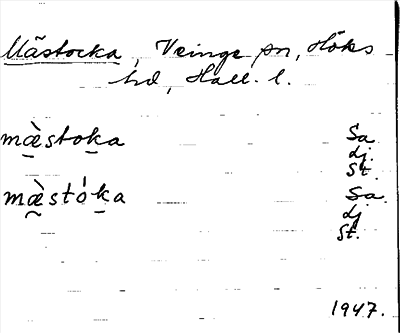 Mästocka, Veinge sn, Höks
hd, Hall. l.
mæ̀stoka Sa.
dj.
St.
mæ̀stóka Sa.
dj
St.
1947.